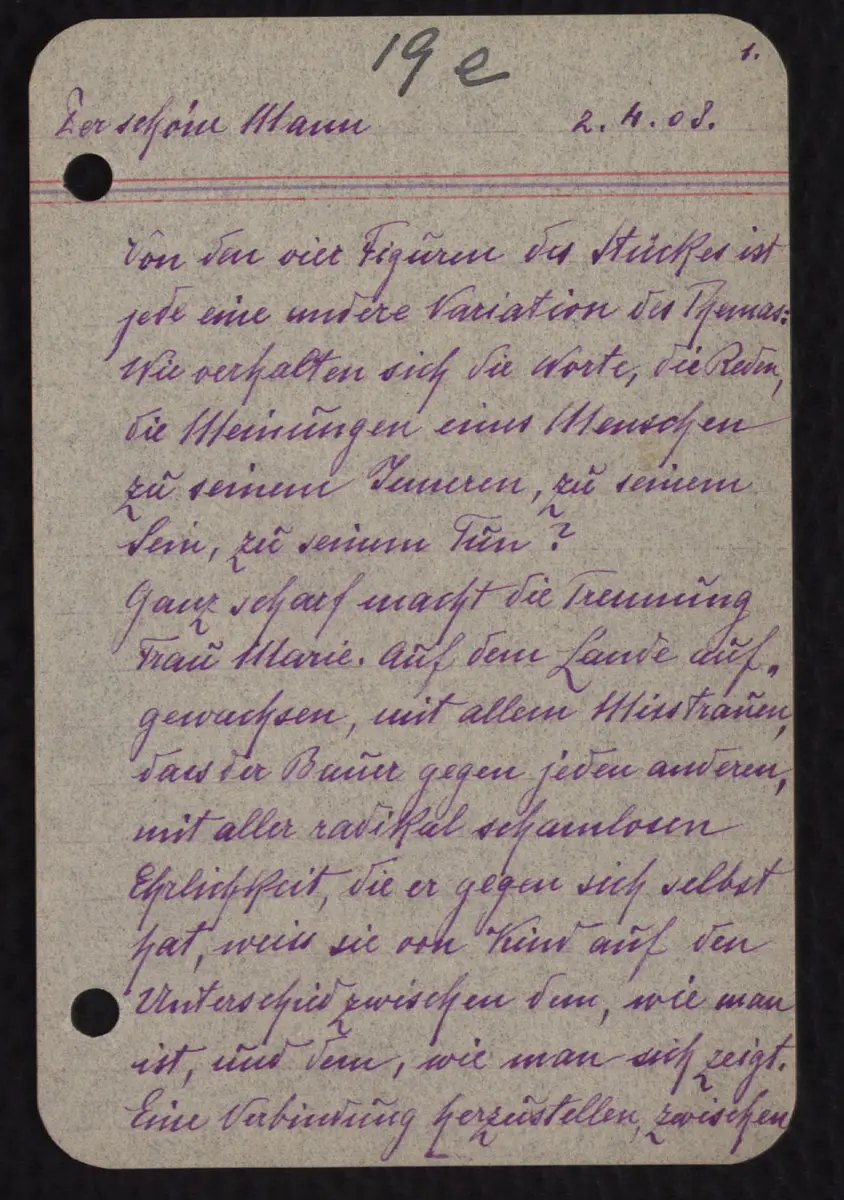 19 e
1.
Der schöne Mann 2.4.08.
Von den vier Figuren des Stückes ist
jede eine andere Variation des Themas:
Wie verhalten sich die Worte, die Reden,
die Meinungen eines Menschen
zu seinem Inneren, zu seinem
Sein, zu seinem Tun?
Ganz scharf macht die Trennung
Frau Marie. Auf dem Lande auf-
gewachsen, mit allem Misstrauen,
dass der Bauer gegen jeden anderen,
mit aller radikal schamlosen
Ehrlichkeit, die er gegen sich selbst
hat, weiss sie von Kind auf den
Unterschied zwischen dem, wie man
ist, und dem, wie man sich zeigt.
Eine Verbindung herzustellen, zwischen